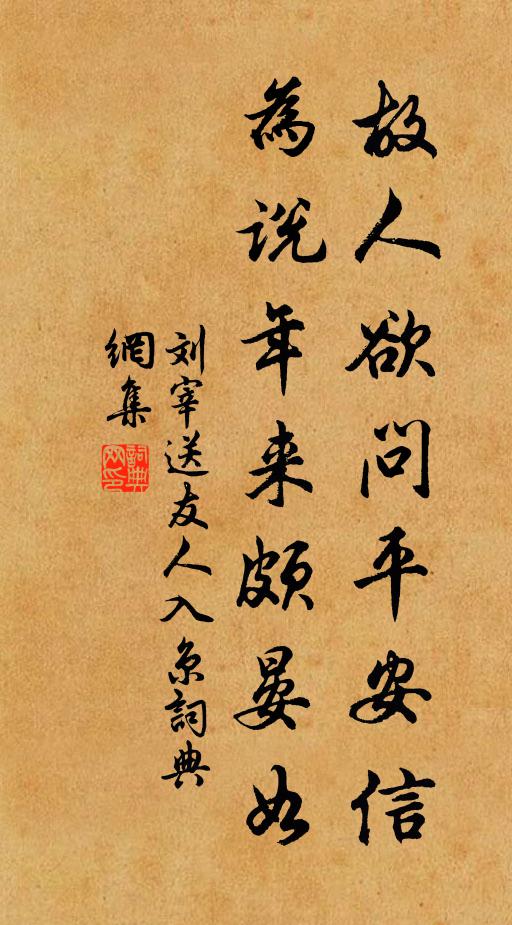 故人欲问平安信
為説年来頗晏如
刘宰送友人入京詞典
網集
詞典網印